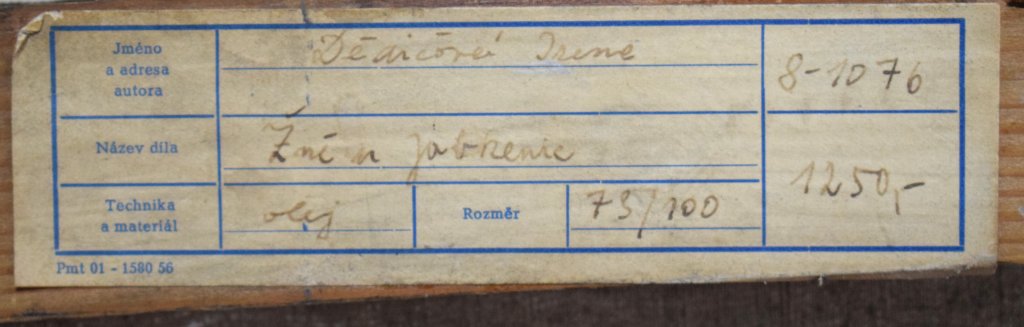 Jméno
a adresa
autora
Dědičová Irene
8-1076
Název díla
Žně u Jabkenic
1250,-
Technika
a materiál
olej
Rozměr
73/100
Pmt 01 - 1580 56